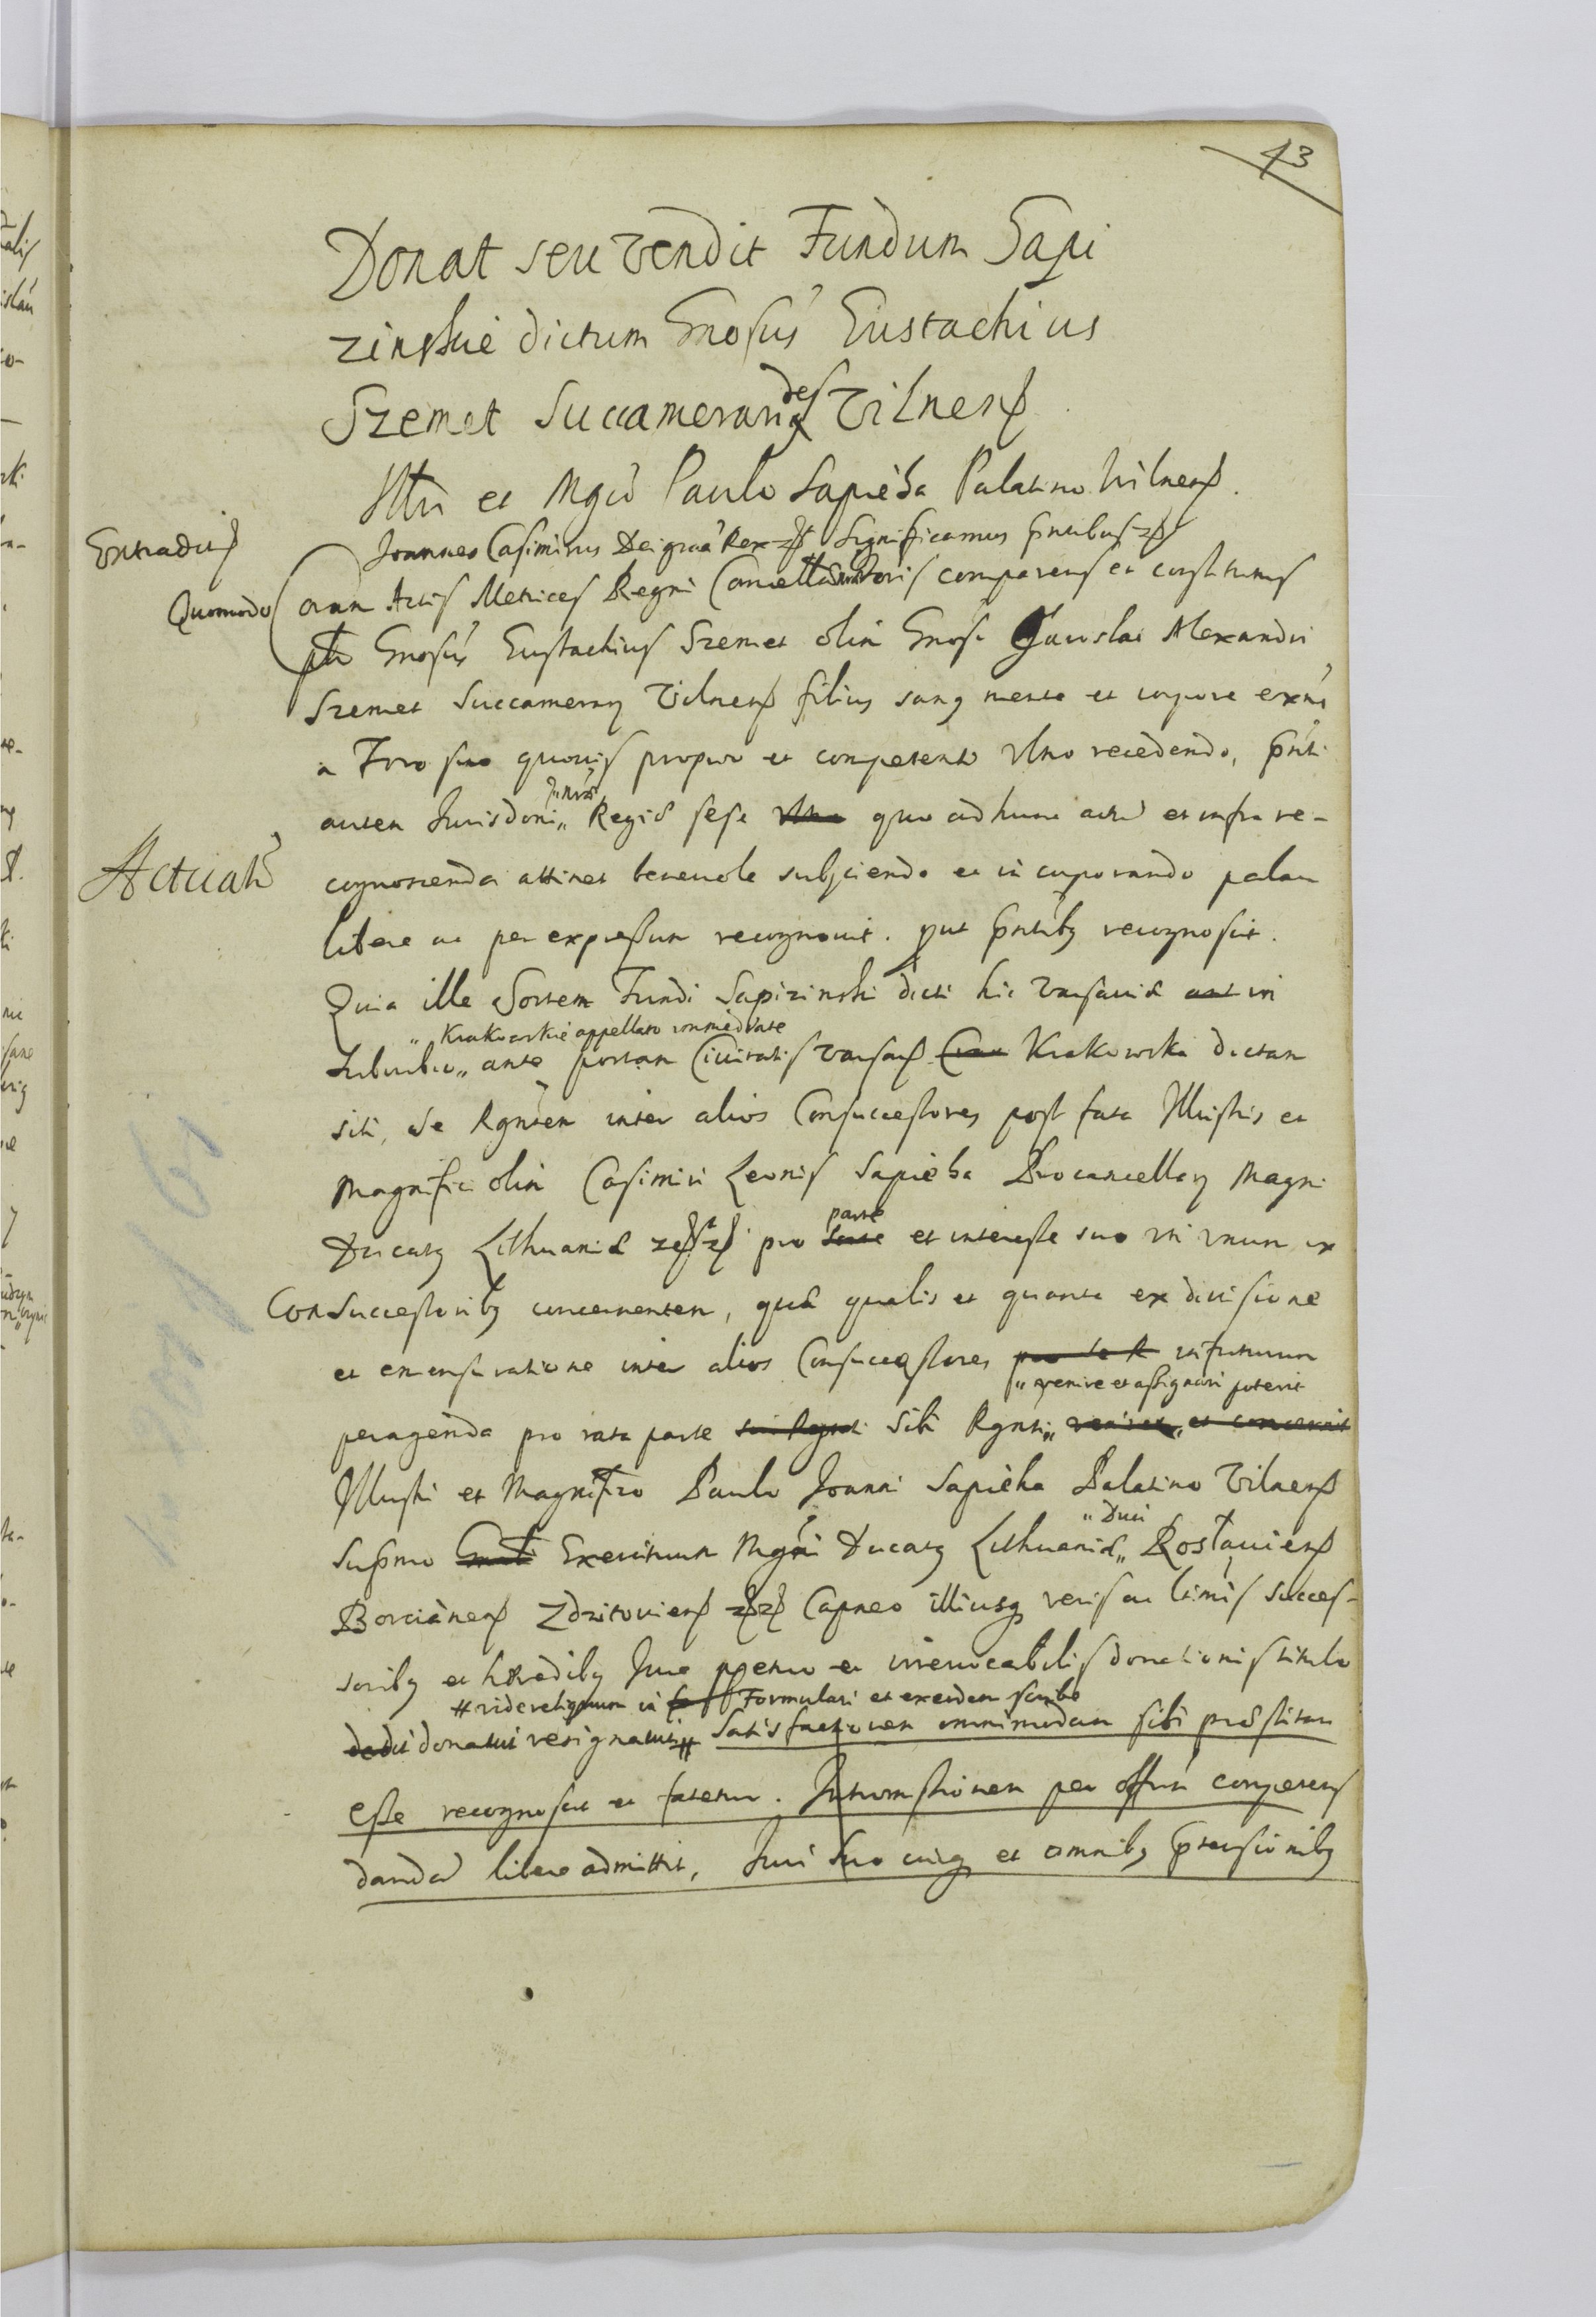 43
Donat seu vendit Fundum Sapi
zinskie dictum Gnosus Eustachius
Szemet Succamerarides Vilnens
Illri et Mgco Paulo Sapieha Palatino Vilnens.
Extradit
Joannes Casimirus Dei gratia Rex Significamus pntibus
Quomodo coram Actis Metrices Regni Cancellariatoris comparens et constitutus
Gnosus Eustachius Szemet olim Gnosi Jaroslai Alexandri
Szemet Succamerarij Vilnens filius sanus mente et corpore exns
a Foro suo quouis proprio et competente recedendo, pnti
autem Jurisdoni " Regiae sese quo ad hunc actu et infra re-
Acticat
cognoscenda attinet beneuole subijciendo et incorporando palam
libere ac per expressum recognouit. put pntibus recognoscit.
Quia ille Sortem Fundi Sapizinski dicti hic Varsauiae in
" Krakowskie appellato immediate
Suburbio " ante portam Ciuitatis Varsaus Krakowska dictam
siti, se Rgntem inter alios Consuccessores post fata Illustris et
Magnifici olim Casimiri Leonis Sapieha Procancellarij Magni
parte
Ducatus Lithuaniae pro et interesse suo uti unum ex
Consuccessoribus concernentem, quae qualis et quanta ex diuisione
et emensuratione inter alios Consuccessores infuturum
" venire et assignari poterit
peragenda pro rata parte sibi Rgnti "
Illustri et Magnifico Paulo Joanni Sapieha Palatino Vilnens
" Duci
Supmo Exercituum Mgni Ducatus Lithuaniae "
Borcianens Zdzitouiens Capneo illiusq veris ac ltimis succes-
soribus et haeredibus Jure ppetuo et irreuocabilis donationis titulo
# vide reliquum in Formulari et exendem scribe
dedit donauit resignauit # Satisfactionem omnimodam sibi praestitam
esse recognoscit et fatetur. Intromissionem per offum competens
dandam libere admittit, Juri suo cuiq et omnibus ptensionibus